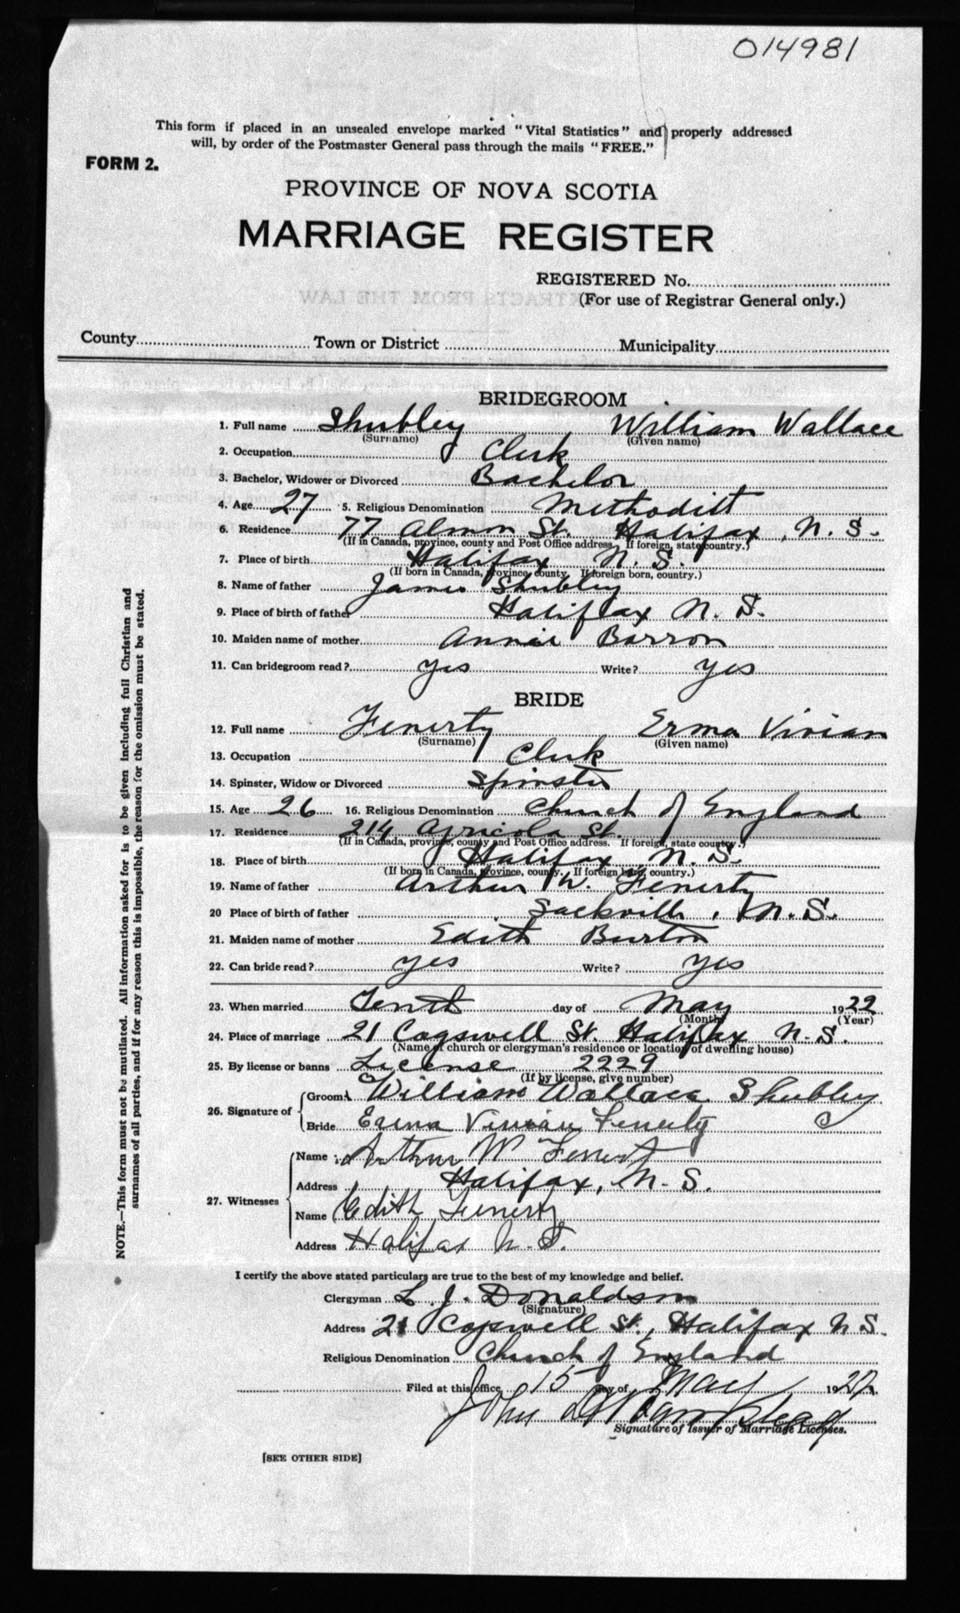 014981
This form if placed in an unsealed envelope marked "Vital Statistics" and properly addressed
will, by order of the Postmaster General pass through the mails "FREE."
FORM 2.
PROVINCE OF NOVA SCOTIA
MARRIAGE REGISTER
REGISTERED No.
(For use of Registrar General only.)
County Town or District Municipality
BRIDEGROOM
1. Full name Shubley William Wallace
(Surname) (Given name)
2. Occupation Clerk
3. Bachelor, Widower or Divorced Bachelor
4. Age 27 5. Religious Denomination Methodist
6. Residence 77 Almon St. Halifax, N.S.
(If in Canada, province, county and Post Office address. If foreign, state country.)
7. Place of birth Halifax N.S.
(If born in Canada, province, county. If foreign born, country.)
8. Name of father James Shubley
9. Place of birth of father Halifax N.S.
10. Maiden name of mother Annie Barron
11. Can bridegroom read? yes Write? yes
BRIDE
12. Full name Fenerty Erma Vivian
(Surname) (Given name)
13. Occupation Clerk
14. Spinster, Widow or Divorced Spinster
15. Age 26 16. Religious Denomination Church of England
17. Residence 214 Agricola St.
(If in Canada, province, county and Post Office address. If foreign, state country.)
18. Place of birth Halifax, N.S.
(If born in Canada, province, county. If foreign born, country.)
19. Name of father Arthur W. Fenerty
20 Place of birth of father Sackville, N.S.
21. Maiden name of mother Edith Burton
22. Can bride read? yes Write? yes
23. When married Tenth day of May 1922
(Month) (Year)
24. Place of marriage 21 Cogswell St. Halifax N.S.
(Name of church or clergyman's residence or location of dwelling house)
25. By license or banns License 2229
(If by license, give number)
26. Signature of Groom William Wallace Shubley
Bride Erma Vivian Fenerty
27. Witnesses Name Arthur W Fenerty
Address Halifax, N.S.
Name Edith Fenerty
Address Halifax N.S.
I certify the above stated particulars are true to the best of my knowledge and belief.
Clergyman L. J. Donaldson
(Signature)
Address 21 Cogswell St., Halifax N.S.
Religious Denomination Church of England
Filed at this office 15 day of May 1922.
John
Signature of Issuer of Marriage Licenses.
[SEE OTHER SIDE]
NOTE.—This form must not be mutilated. All information asked for is to be given including full Christian and
surnames of all parties, and if for any reason this is impossible, the reason for the omission must be stated.